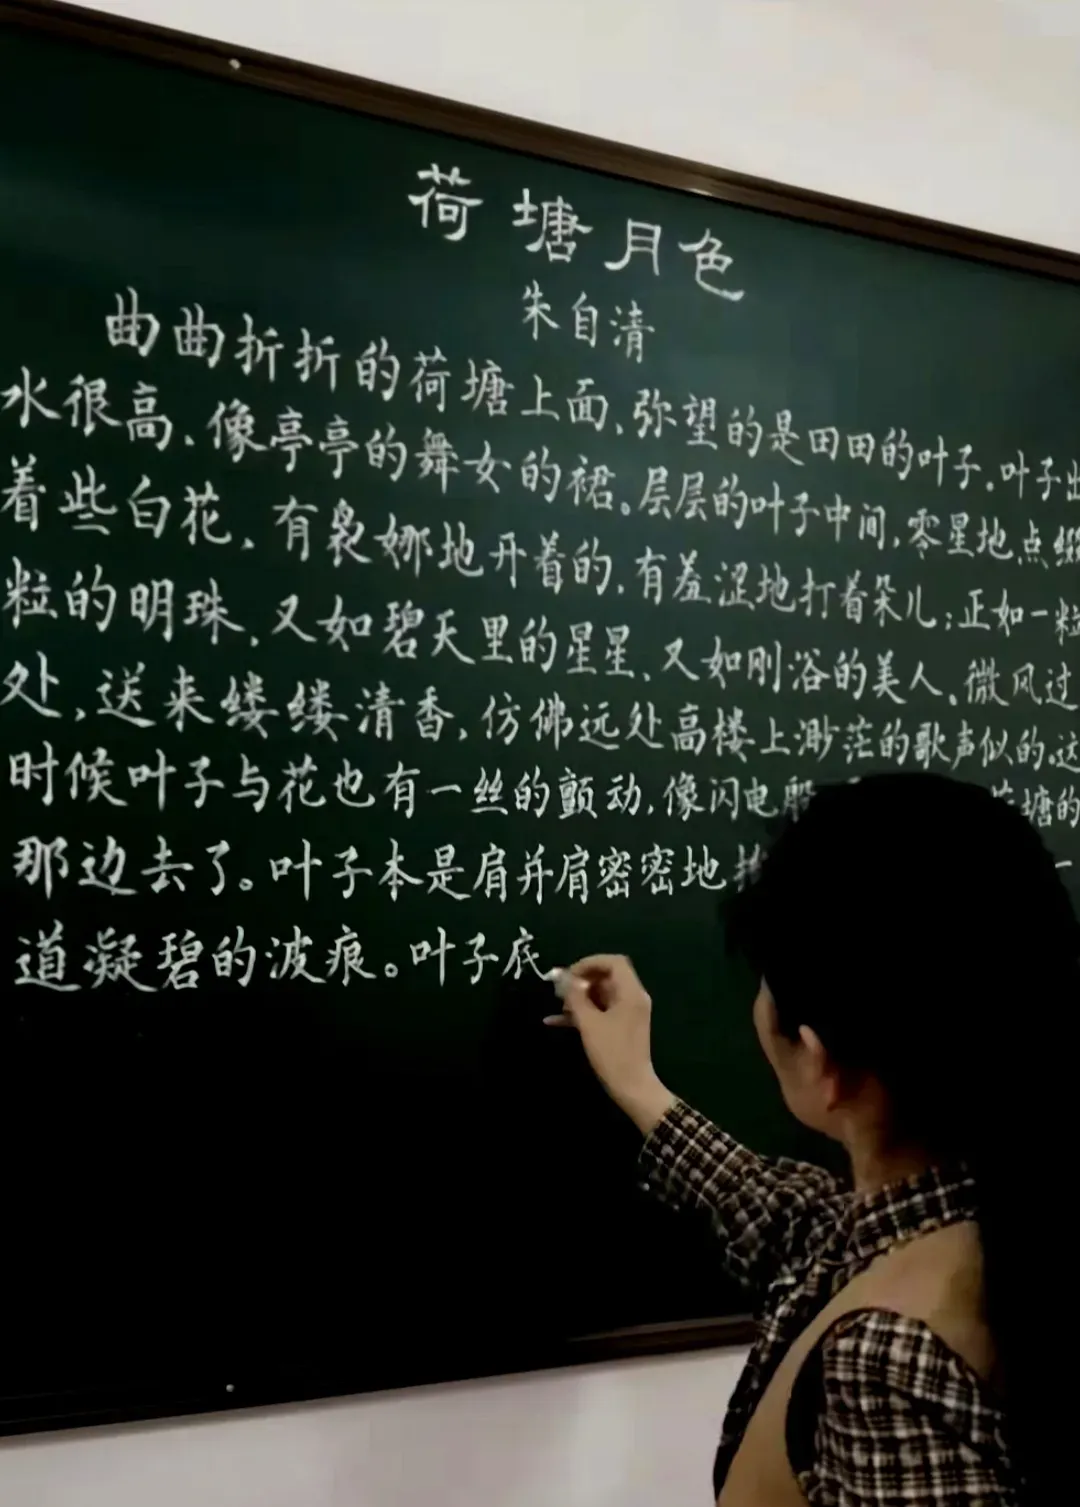 荷塘月色
朱自清
曲曲折折的荷塘上面、弥望的是田田的叶子。叶子出
水很高、像亭亭的舞女的裙。层层的叶子中间,零星地点缀
着些白花,有袅娜地开着的,有羞涩地打着朵儿;正如一粒
粒的明珠,又如碧天里的星星,又如刚浴的美人。微风过
处,送来缕缕清香,仿佛远处高楼上渺茫的歌声似的。这
时候叶子与花也有一丝的颤动,像闪电般 塘的
那边去了。叶子本是肩并肩密密地 一
道凝碧的波痕。叶子底